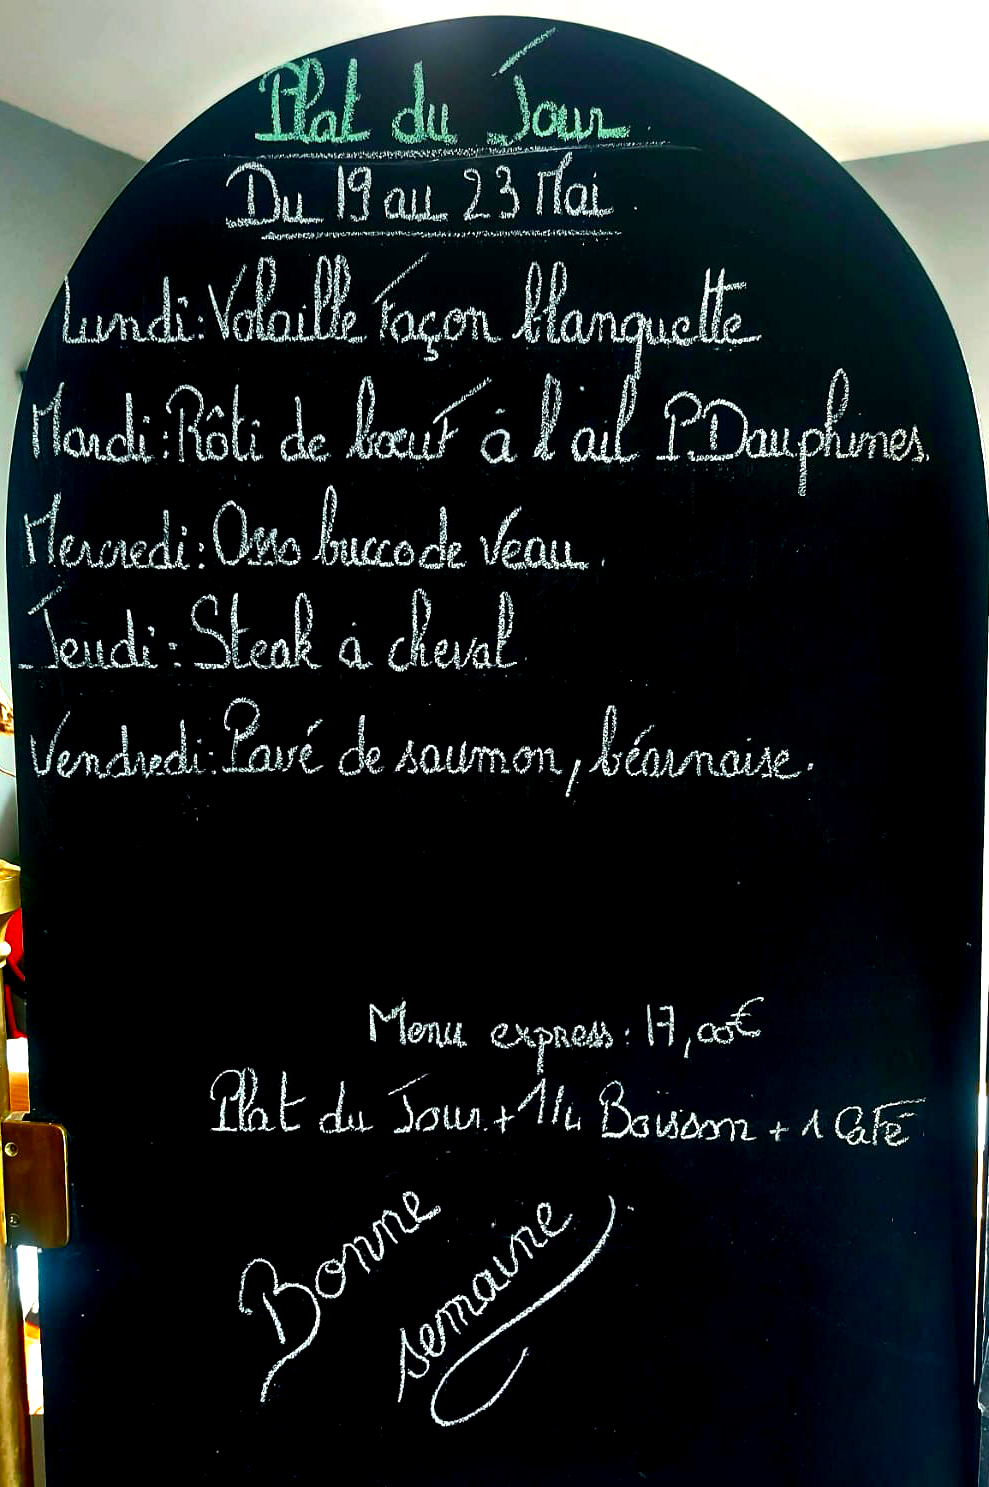 Plat du Jour.
Du 19 au 23 Mai.
Lundi: Volaille Façon blanquette
Mardi: Rôti de bœuf à l'ail P.Dauphines.
Mercredi: Osso bucco de Veau.
Jeudi: Steak à cheval
Vendredi: Pavé de saumon, béarnaise.
Menu express: 17,00€
Plat du Jour + 1/4 Boisson + 1 Café
Bonne
semaine